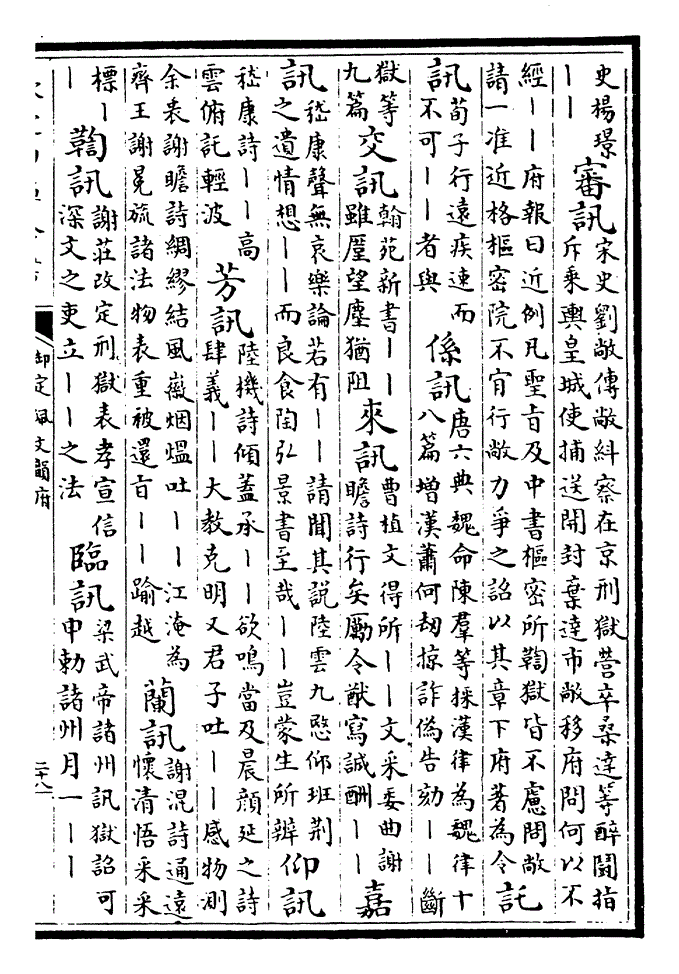 史楊璟——審訊宋史劉敞傳敞糾察在京刑獄營卒桑達等醉鬭指斥乘輿皇城使捕送開封棄達市敞移府問何以不
經——府報曰近例凡聖旨及中書樞密所鞫獄皆不慮問敞請一准近格樞密院不肎行敞力爭之詔以其章下府著為令託
訊荀子行遠疾速而不可——者與係訊唐六典魏命陳羣等採漢律為魏律十八篇增漢蕭何劫掠詐偽告劾——斷
獄等九篇交訊翰苑新書——雖厪望塵猶阻來訊曹植文得所——文采委曲謝瞻詩行矣勵令猷寫誠酬——嘉
訊嵇康聲無哀樂論若有——請聞其説陸雲九愍仰班荆之遺情想——而良食陶弘景書至哉——豈蒙生所辨仰訊
嵇康詩——高雲俯託輕波芳訊陸機詩傾蓋承——欲鳴當及晨顔延之詩肆義——大教克明又君子吐——感物測
余衷謝瞻詩綢繆結風徽烟熅吐——江淹為齊王謝冕旒諸法物表重被還旨——踰越蘭訊謝混詩通遠懷清悟采采
標——鞫訊謝莊改定刑獄表孝宣信深文之吏立——之法臨訊梁武帝諸州訊獄詔可申勅諸州月一——
御定佩文韻府
二十八